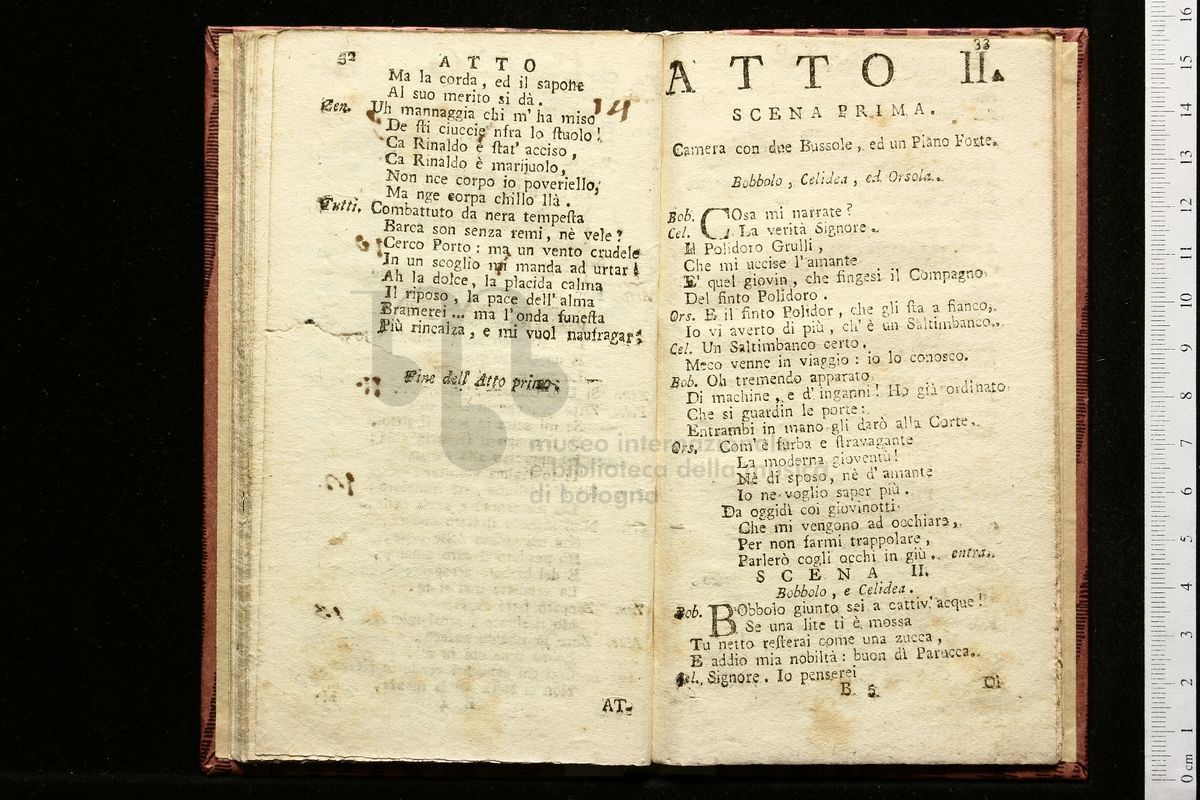 32
A T T O
Ma la corda, ed il sapone
Al suo merito si dà.
Zen. Uh mannaggia chi m'ha miso
14
De sti ciuccie nfra lo stuolo!
Ca Rinaldo è stat' acciso,
Ca Rinaldo è marijuolo,
Non nce corpo io poveriello,
Ma nge corpa chillo llà.
Tutti. Combattuto da nera tempesta
Barca son senza remi, nè vele?
Cerco Porto: ma un vento crudele
In un scoglio mi manda ad urtar!
Ah la dolce, la placida calma
Il riposo, la pace dell'alma
Bramerei... ma l'onda funesta
Più rincalza, e mi vuol naufragar.
Fine dell' Atto primo.
AT-
33
A T T O II.
SCENA PRIMA.
Camera con due Bussole, ed un Piano Forte.
Bobbolo, Celidea, ed Orsola.
Bob. COsa mi narrate?
Cel. La verità Signore.
Il Polidoro Grulli,
Che mi uccise l'amante
E' quel giovin, che fingesi il Compagno
Del finto Polidoro.
Ors. E il finto Polidor, che gli sta a fianco,
Io vi averto di più, ch' è un Saltimbanco.
Cel. Un Saltimbanco certo.
Meco venne in viaggio: io lo conosco.
Bob. Oh tremendo apparato
Di machine, e d'inganni! Ho già ordinato
Che si guardin le porte:
Entrambi in mano gli darò alla Corte.
Ors. Com'è furba e stravagante
La moderna gioventù!
Nè di sposo, nè d'amante
Io ne voglio saper più.
Da oggidì coi giovinotti
Che mi vengono ad occhiare,
Per non farmi trappolare,
Parlerò cogli occhi in giù. entra.
S C E N A II.
Bobbolo, e Celidea.
Bob. BObbolo giunto sei a cattiv' acque!
Se una lite ti è mossa
Tu netto resterai come una zucca,
E addio mia nobiltà: buon dì Parucca.
Cel. Signore. Io penserei
B 5
Di
museo internazionale
e biblioteca della musica
di bologna
0 cm 1 2 3 4 5 6 7 8 9 10 11 12 13 14 15 16